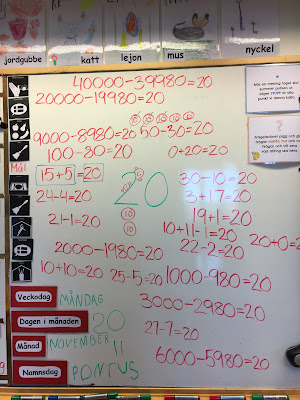 jordgubbe
katt
lejon
mus
nyckel
40000-39980=20
20000-19980=20
10 10 10 10 10
9000-8980=20
50-30=20
100-80=20
0+20=20
Mål
15+5=20
20
30-10=20
24-4=20
3+17=20
21-1=20
10
10
19+1=20
10+11-1=20
20+0=20
22-2=20
2000-1980=20
10+10=20
25-5=20
1000-980=20
Veckodag
MÅNDAG
3000-2980=20
Dagen i månaden
20
27-7=20
Månad
NOVEMBER 11
6000-5980=20
Namnsdag
PONTUS